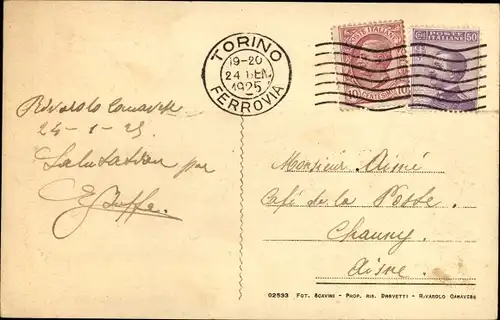 TORINO
19-20
24 GEN
1925
FERROVIA
POSTE ITALIANE
10 CENTESIMI 10
POSTE ITALIANE 50
Rivarolo Canavese
24-1-25
Salutations par
E. Buffa
Monsieur Aimé
Café de la Poste.
Chauny.
Aisne.
02533 FOT. SCAVINI - PROP. RIS. DROVETTI - RIVAROLO CANAVESE